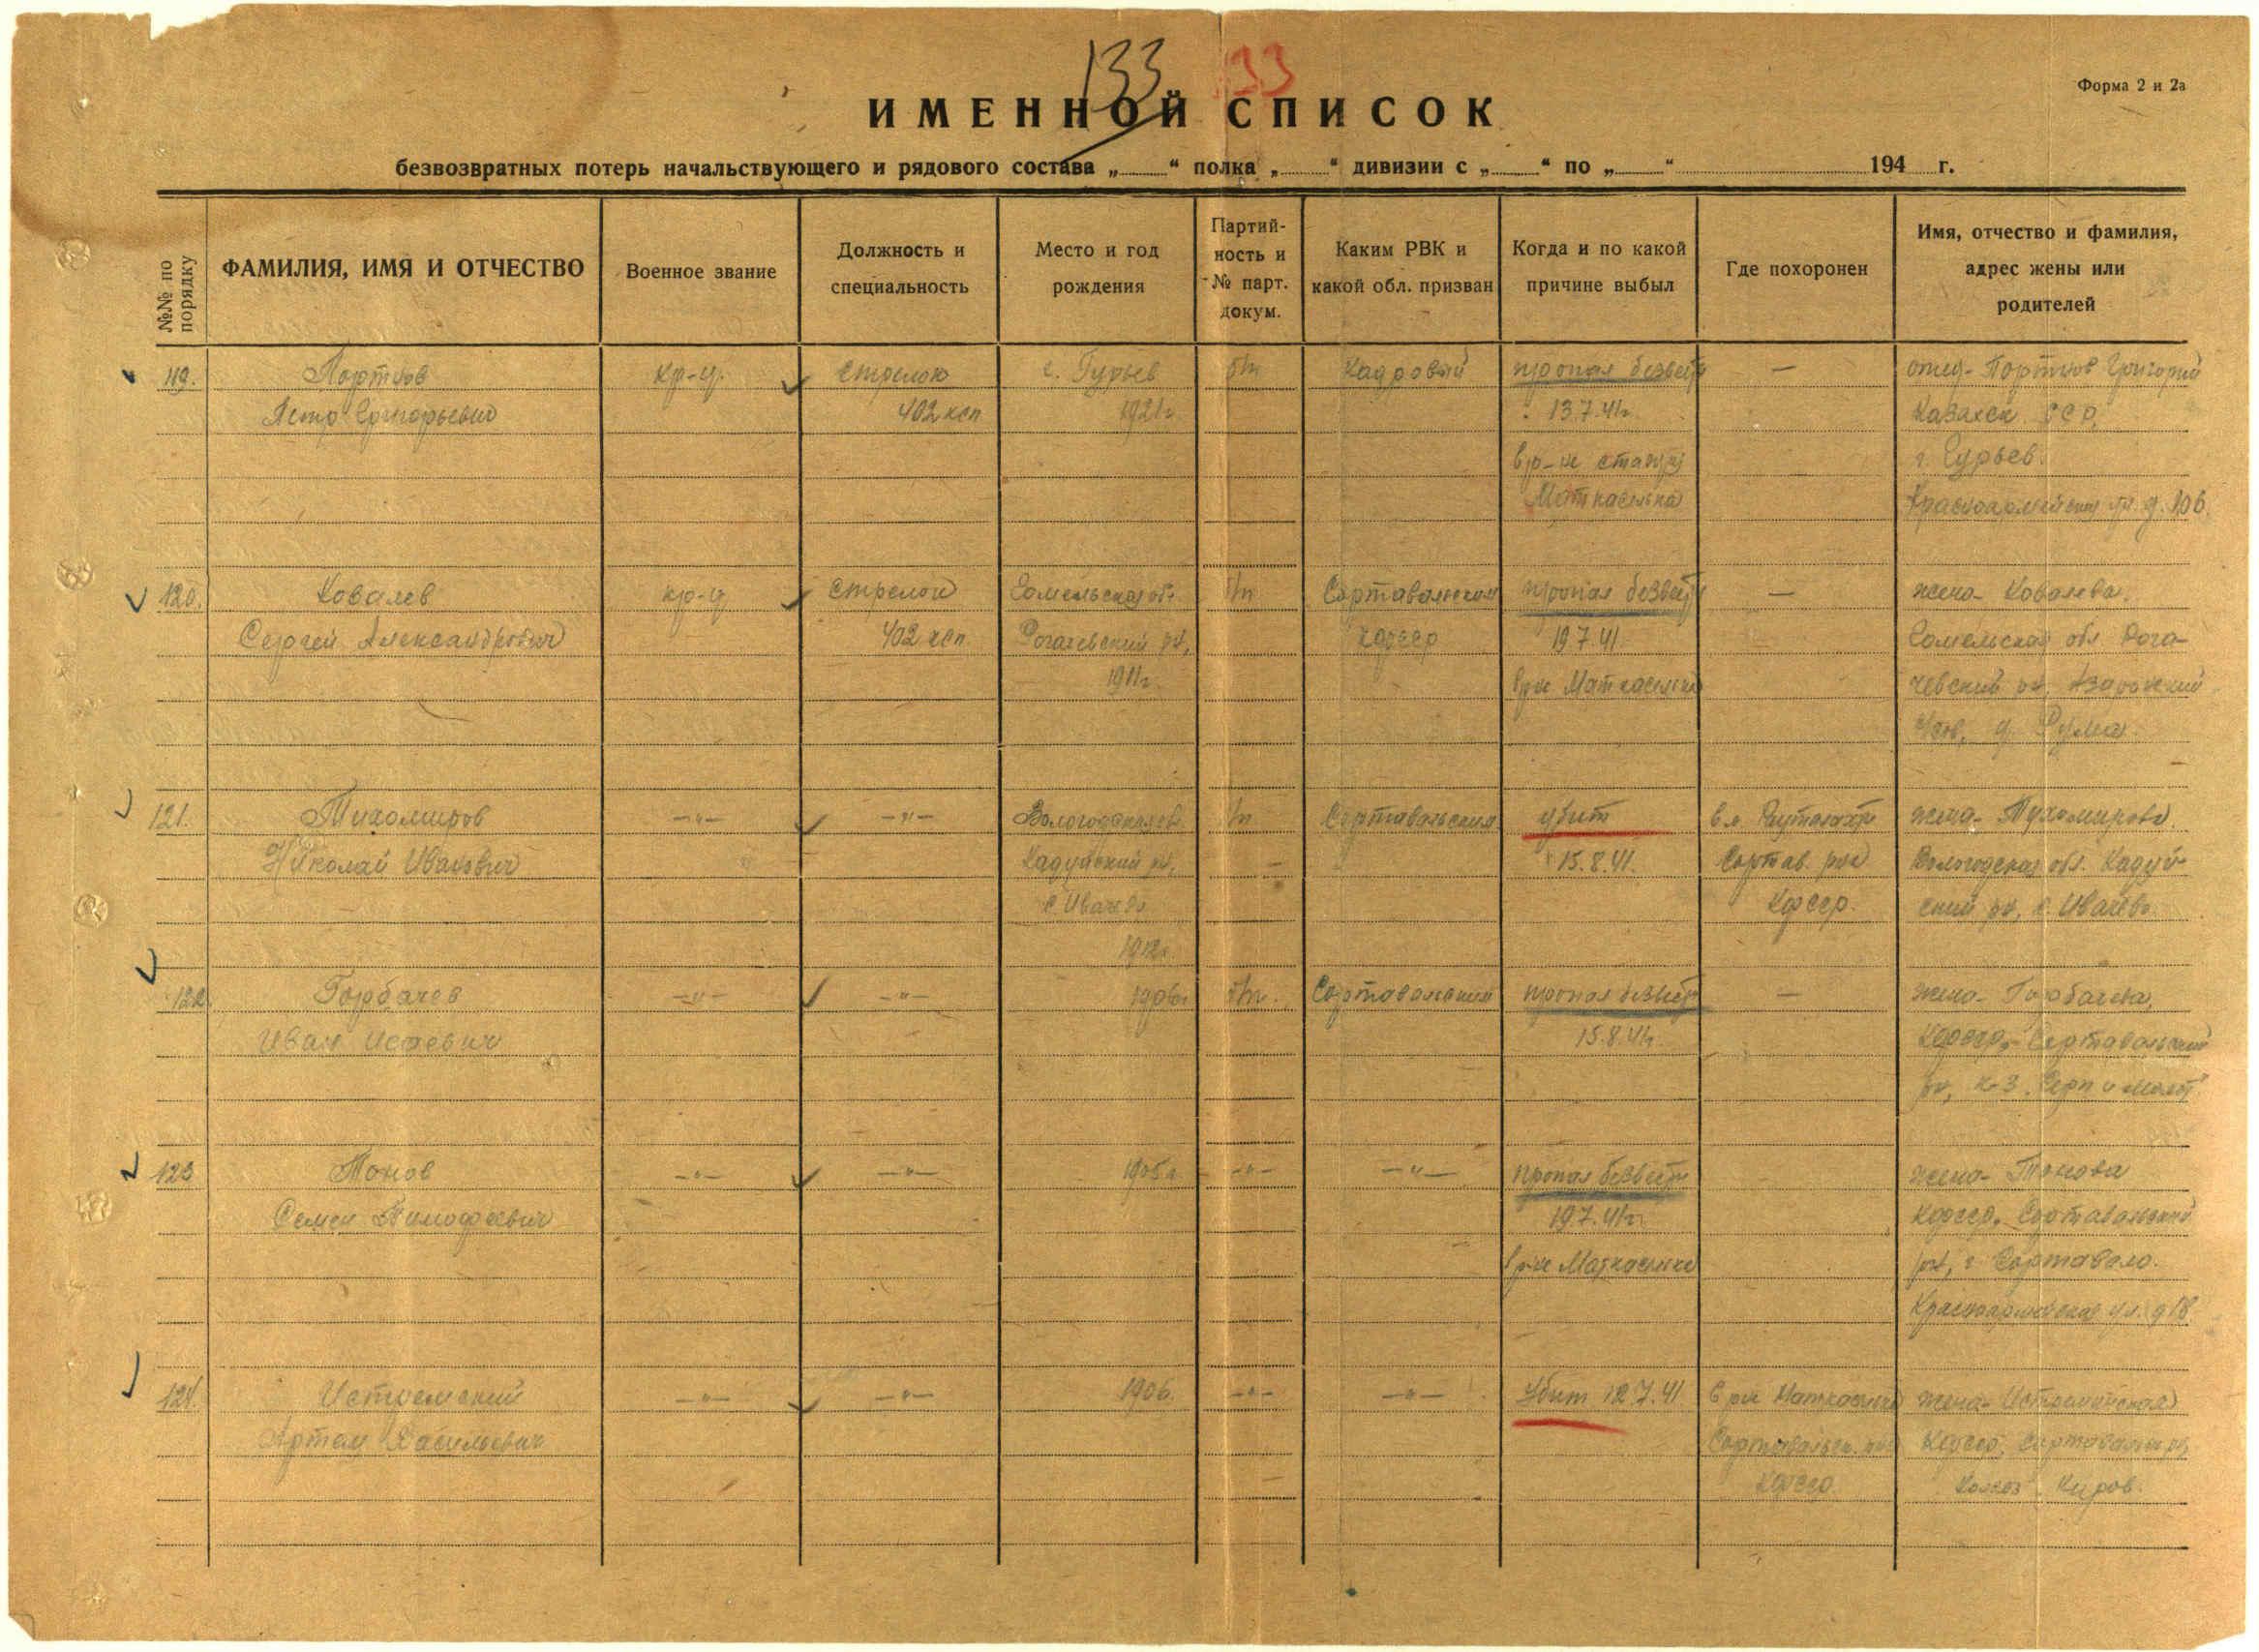 133 133
Форма 2 и 2а
ИМЕННОЙ СПИСОК
безвозвратных потерь начальствующего и рядового состава „ “ полка „ “ дивизии с „ “ по „ “ 194 г.
№№ по порядку
ФАМИЛИЯ, ИМЯ И ОТЧЕСТВО
Военное звание
Должность и
специальность
Место и год
рождения
Партий-
ность и
№ парт.
докум.
Каким РВК и
какой обл. призван
Когда и по какой
причине выбыл
Где похоронен
Имя, отчество и фамилия,
адрес жены или
родителей
119. Портнов кр-ц. стрелок г. Гурьев б/п Кадровый пропал безвести — отец- Портнов Григорий
Петр Григорьевич 402 ксп 1921г. 13.7.41г. Казахск. ССР,
в р-не станции г. Гурьев.
Маткаселька Красноармейская ул. д. 106.
120. Ковалев кр-ц стрелок Гомельская обл. б/п Сортавальским пропал безвести — жена- Ковалева.
Сергей Александрович 402 ксп. Рогачевский рн, Кфсср 19.7.41 Гомельская обл. Рога-
1911г. в р-не Маткаселька чевский рн,
с/сов, д.
121. Тихомиров —"— —"— Вологодская обл. б/п Сортавальским убит жена- Тихомирова.
Николай Иванович Кадуйский рн, 15.8.41. Сортав. рна Вологодская обл. Кадуй-
с. Ивачево Кфсср. ский рн, с. Ивачево
1912г.
122. Горбачев —"— —"— 1906г. б/п. Сортавальским пропал безвести — жена- Горбачева,
Иван Исаевич 15.8.41г. Кфсср, Сортавальский
рн, к-з. Серп и молот
123 Тонов —"— —"— 1905г. —"— —"— пропал безвести жена- Тонова
Семен Тимофеевич 19.7.41г. Кфсср, Сортавальский
в р-не Маткаселька рн, г. Сортавало.
Красноармейская ул. д 18
124. —"— —"— 1906. —"— —"— убит 12.7.41. в р-не Маткаселька жена-
Артем Васильевич Сортавальск. рна Кфсср, Сортавальск. рн,
Кфсср. Колхоз Киров.